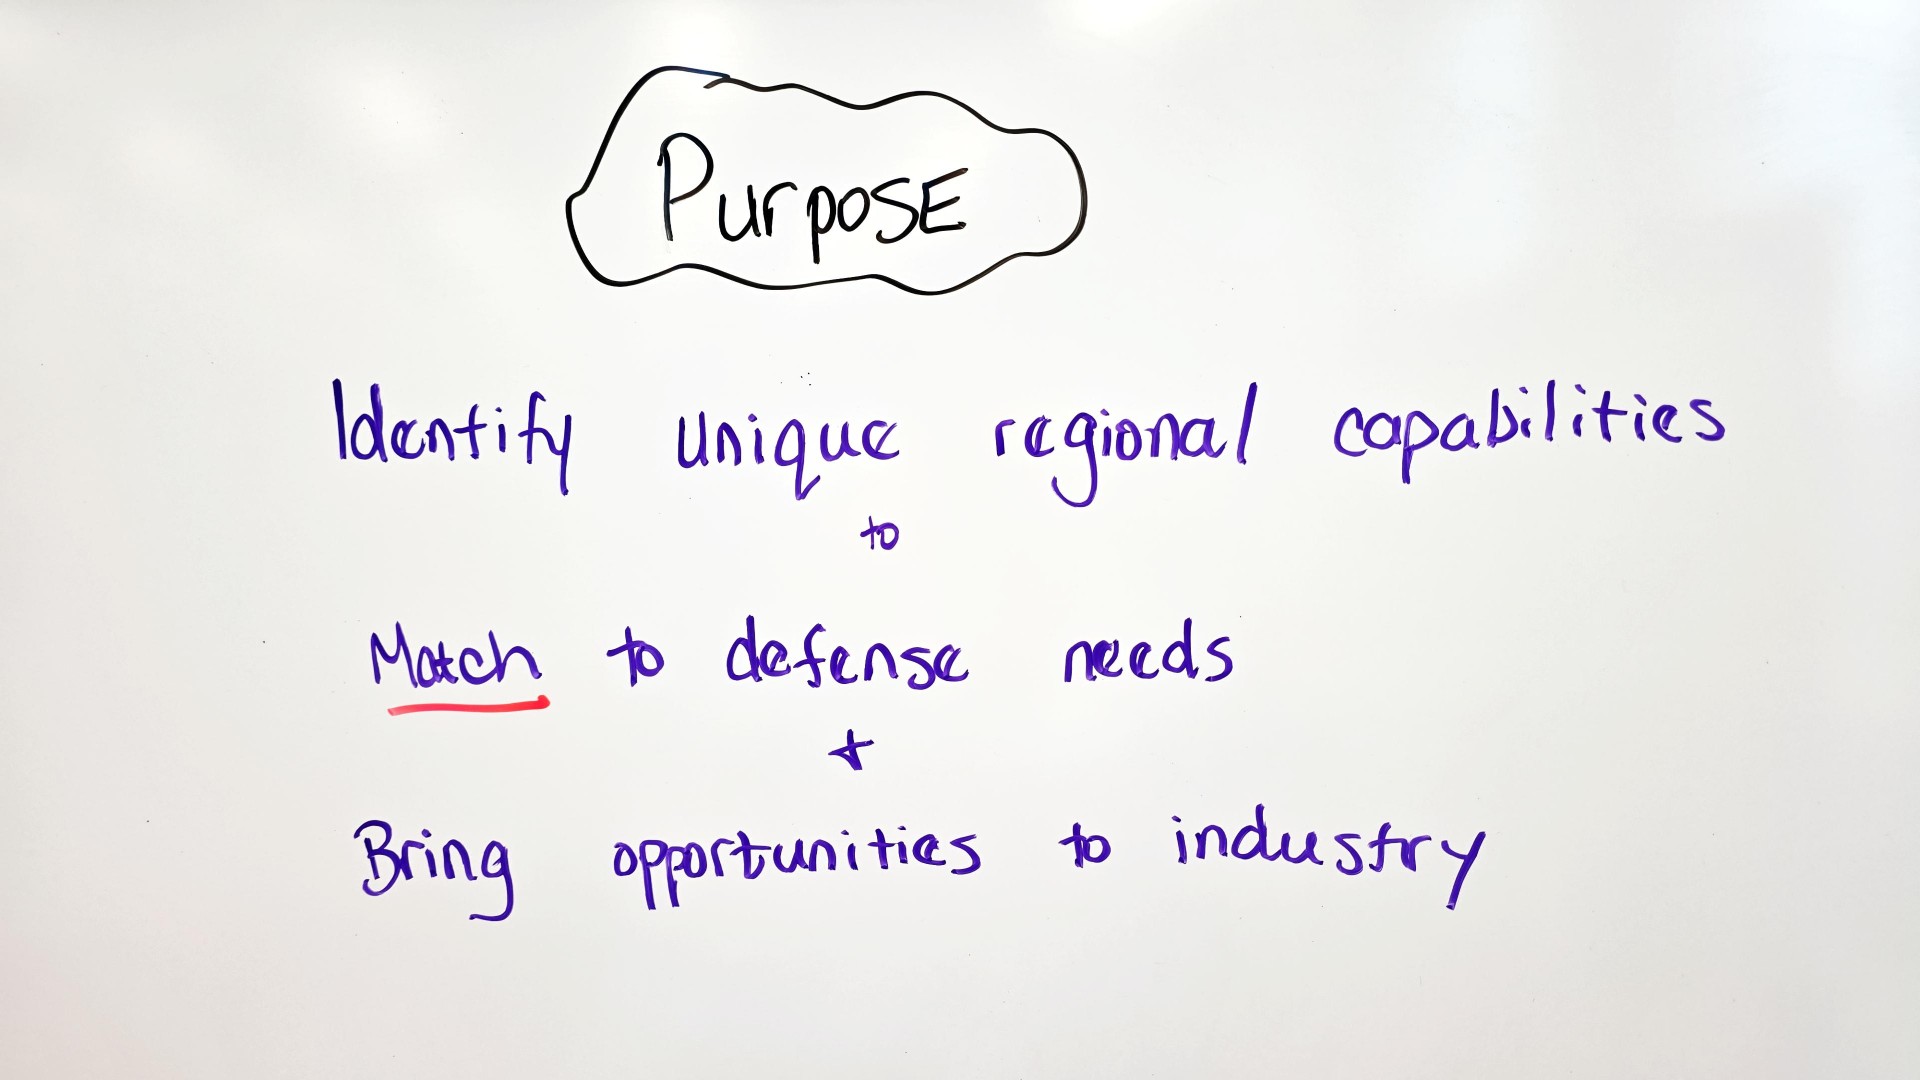 PurposE
Identify unique regional capabilities
to
Match to defense needs
+
Bring opportunities to industry